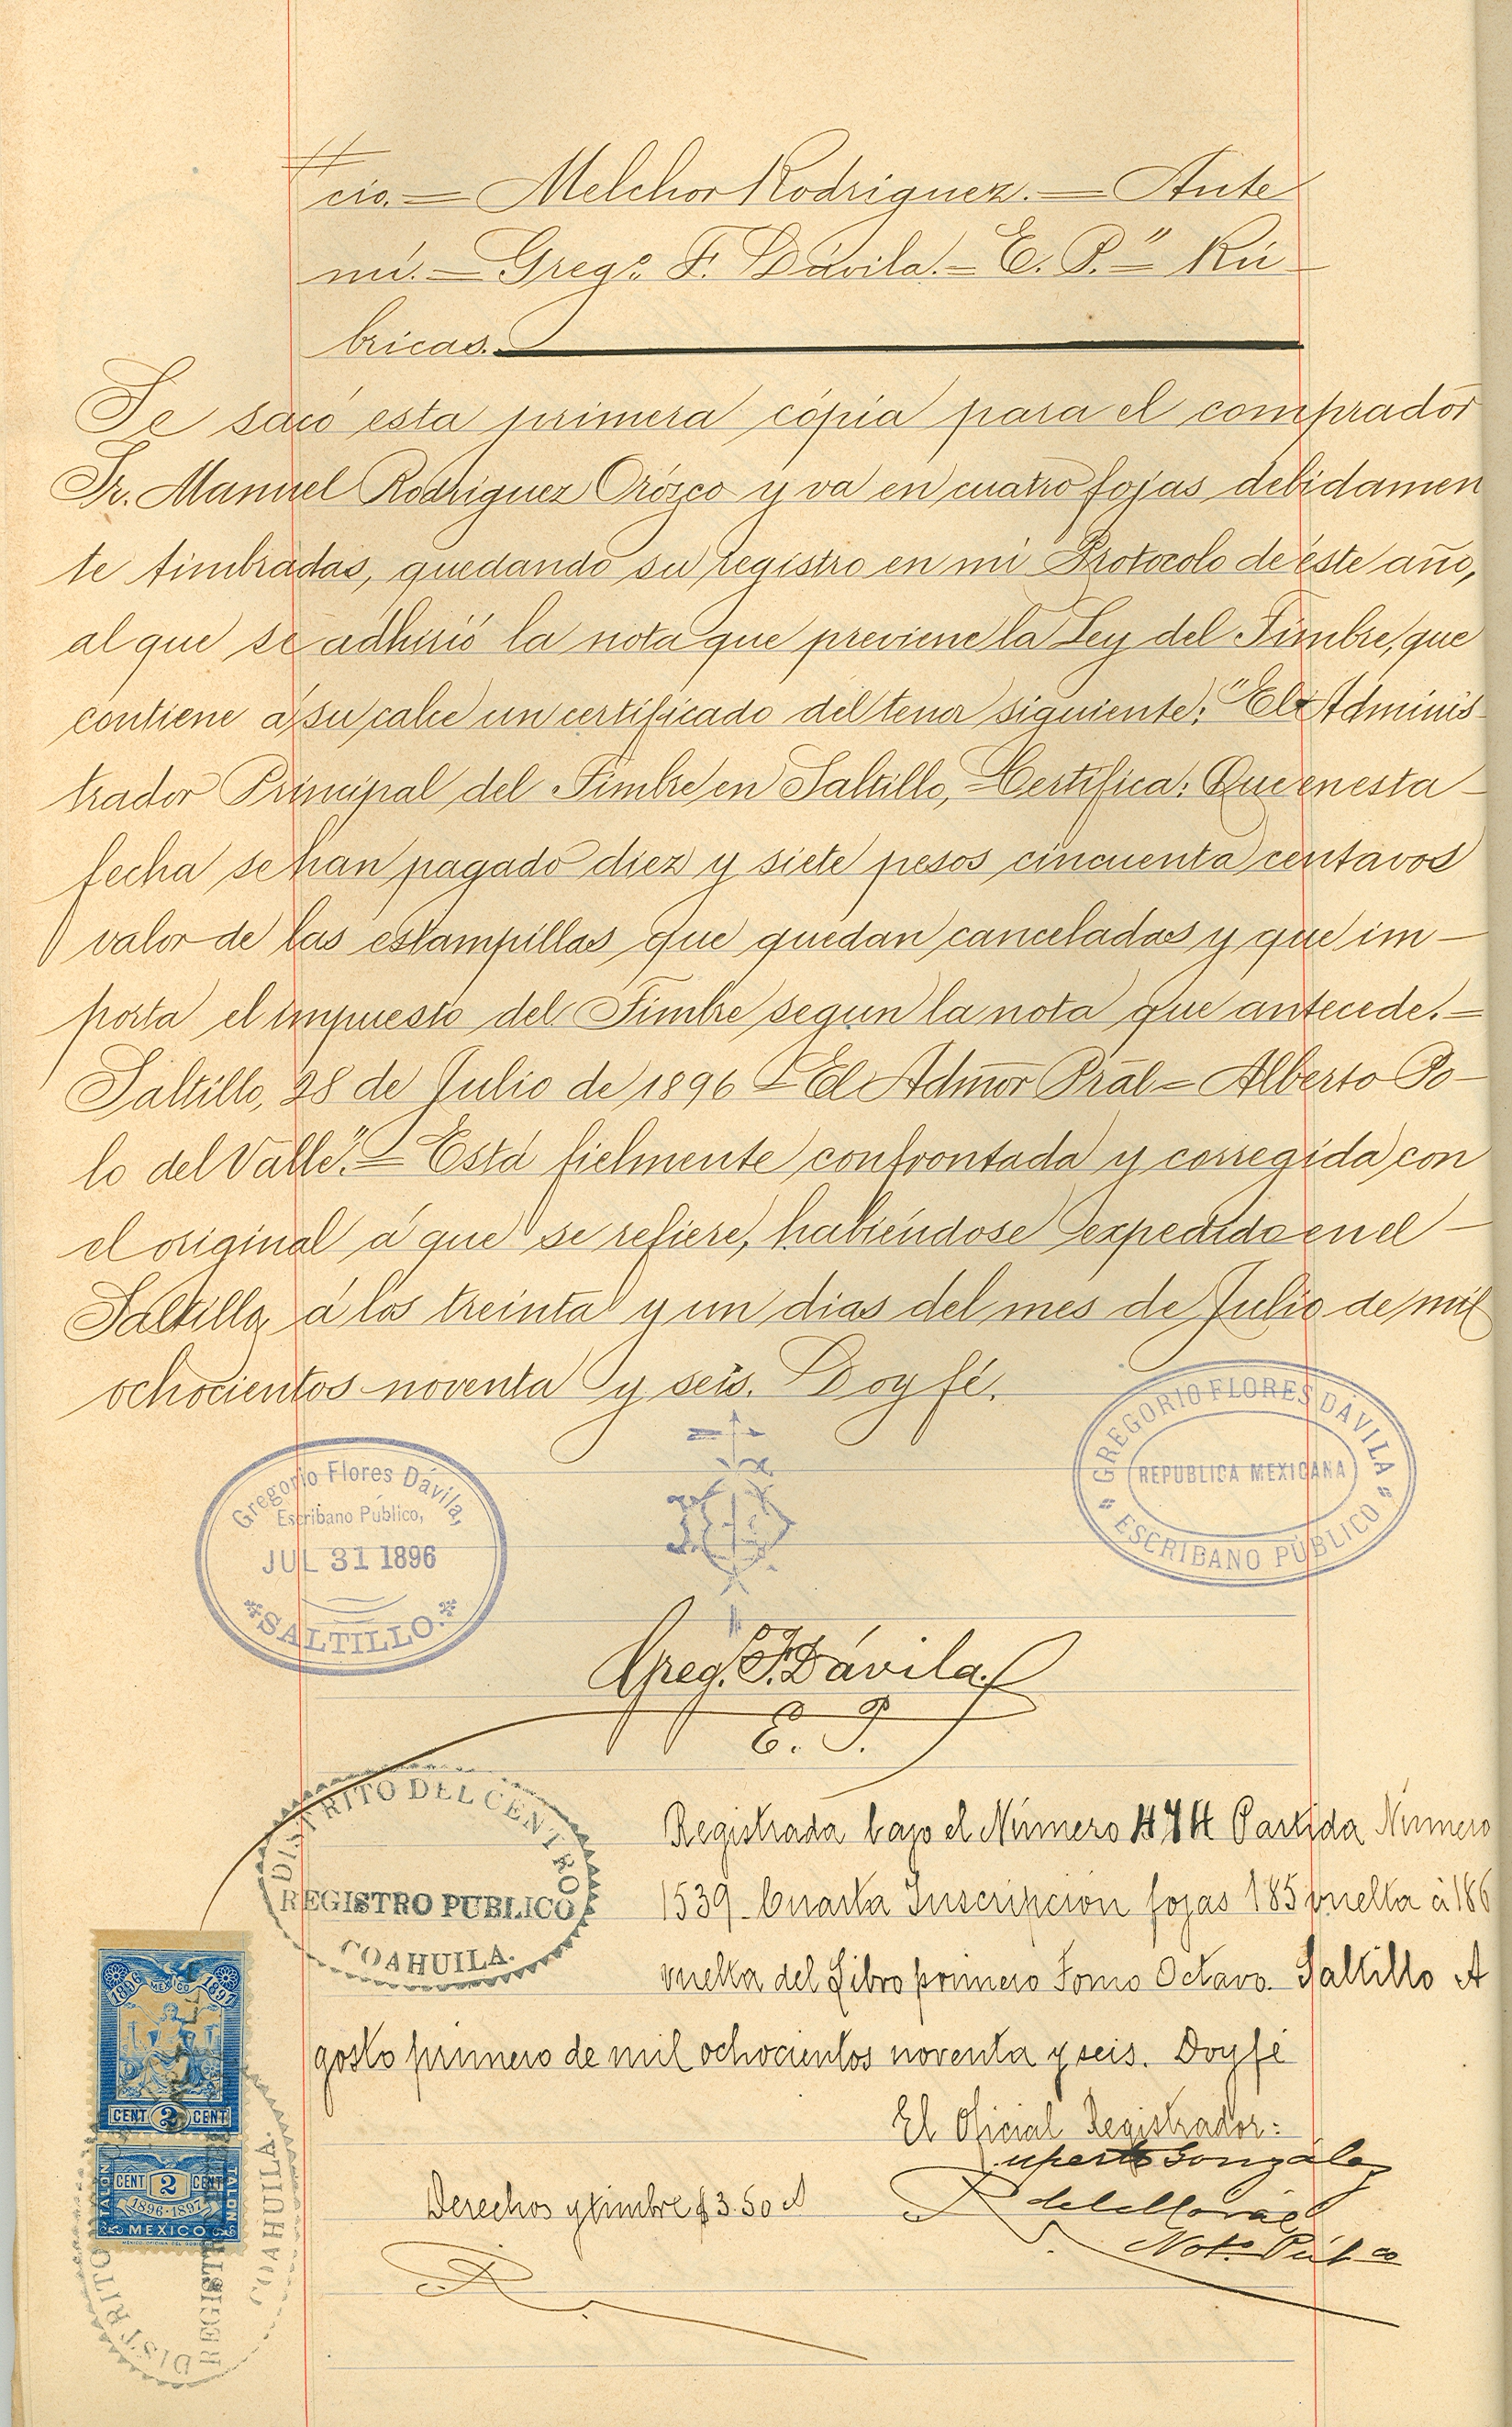 cio.= Melchor Rodriguez.= Ante
mí.= Grego. F. Dávila.= E. P." Rú
bricas.
Se sacó esta primera cópia para el comprador
Sr. Manuel Rodriguez Orózco y va en cuatro fojas debidamen
te timbradas, quedando su registro en mi Protocolo de éste año,
al que se adhirió la nota que previene la Ley del Timbre, que
contiene á su calce un certificado del tenor siguiente: "El Adminis-
trador Principal del Timbre en Saltillo, Certifica: Que en esta
fecha se han pagado diez y siete pesos cincuenta centavos
valor de las estampillas que quedan canceladas y que im-
porta el impuesto del Timbre segun la nota que antecede.=
Saltillo, 28 de Julio de 1896 = El Admor Pral = Alberto Po-
lo del Valle".= Está fielmente confrontada y corregida con
el original á que se refiere, habiéndose expedido en el
Saltillo, á los treinta y un dias del mes de Julio de mil
ochocientos noventa y seis. Doy fé.
GREGORIO FLORES DÁVILA
REPUBLICA MEXICANA
ESCRIBANO PÚBLICO
Gregorio Flores Dávila,
Escribano Público,
JUL 31 1896
SALTILLO.
Greg. F. Dávila.
E. P.
DISTRITO DEL CENTRO
REGISTRO PUBLICO
COAHUILA.
Registrada bajo el Número 474 Partida Número
1539 Cuarta Inscripcion fojas 185 vuelta á 186
vuelta del Libro primero Tomo Octavo. Saltillo A
gosto primero de mil ochocientos noventa y seis. Doy fé
El Oficial Registrador:
Ruperto González
Not. Púb co
Derechos y timbre $3.50
1896 MEXICO 1897
CENT 2 CENT
TALON CENT 2 CENT TALON
1896-1897
MEXICO
DISTRITO
REGISTR
COAHUILA.